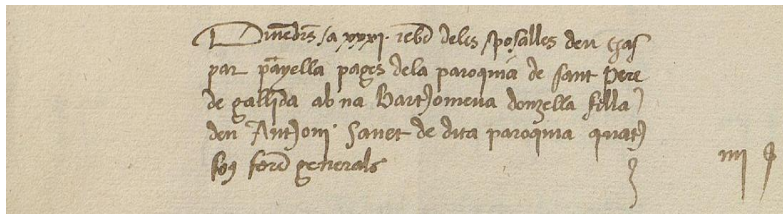 Divendres a xxxi rebẽ deles sposalles den Gas
par p̃ayella pages dela paroquia de sant Pere
de gallida ab na Barthomeua donzella filla
den Anthoni Sanet de dita paroquia quat
sous foreñ generals
iiij s